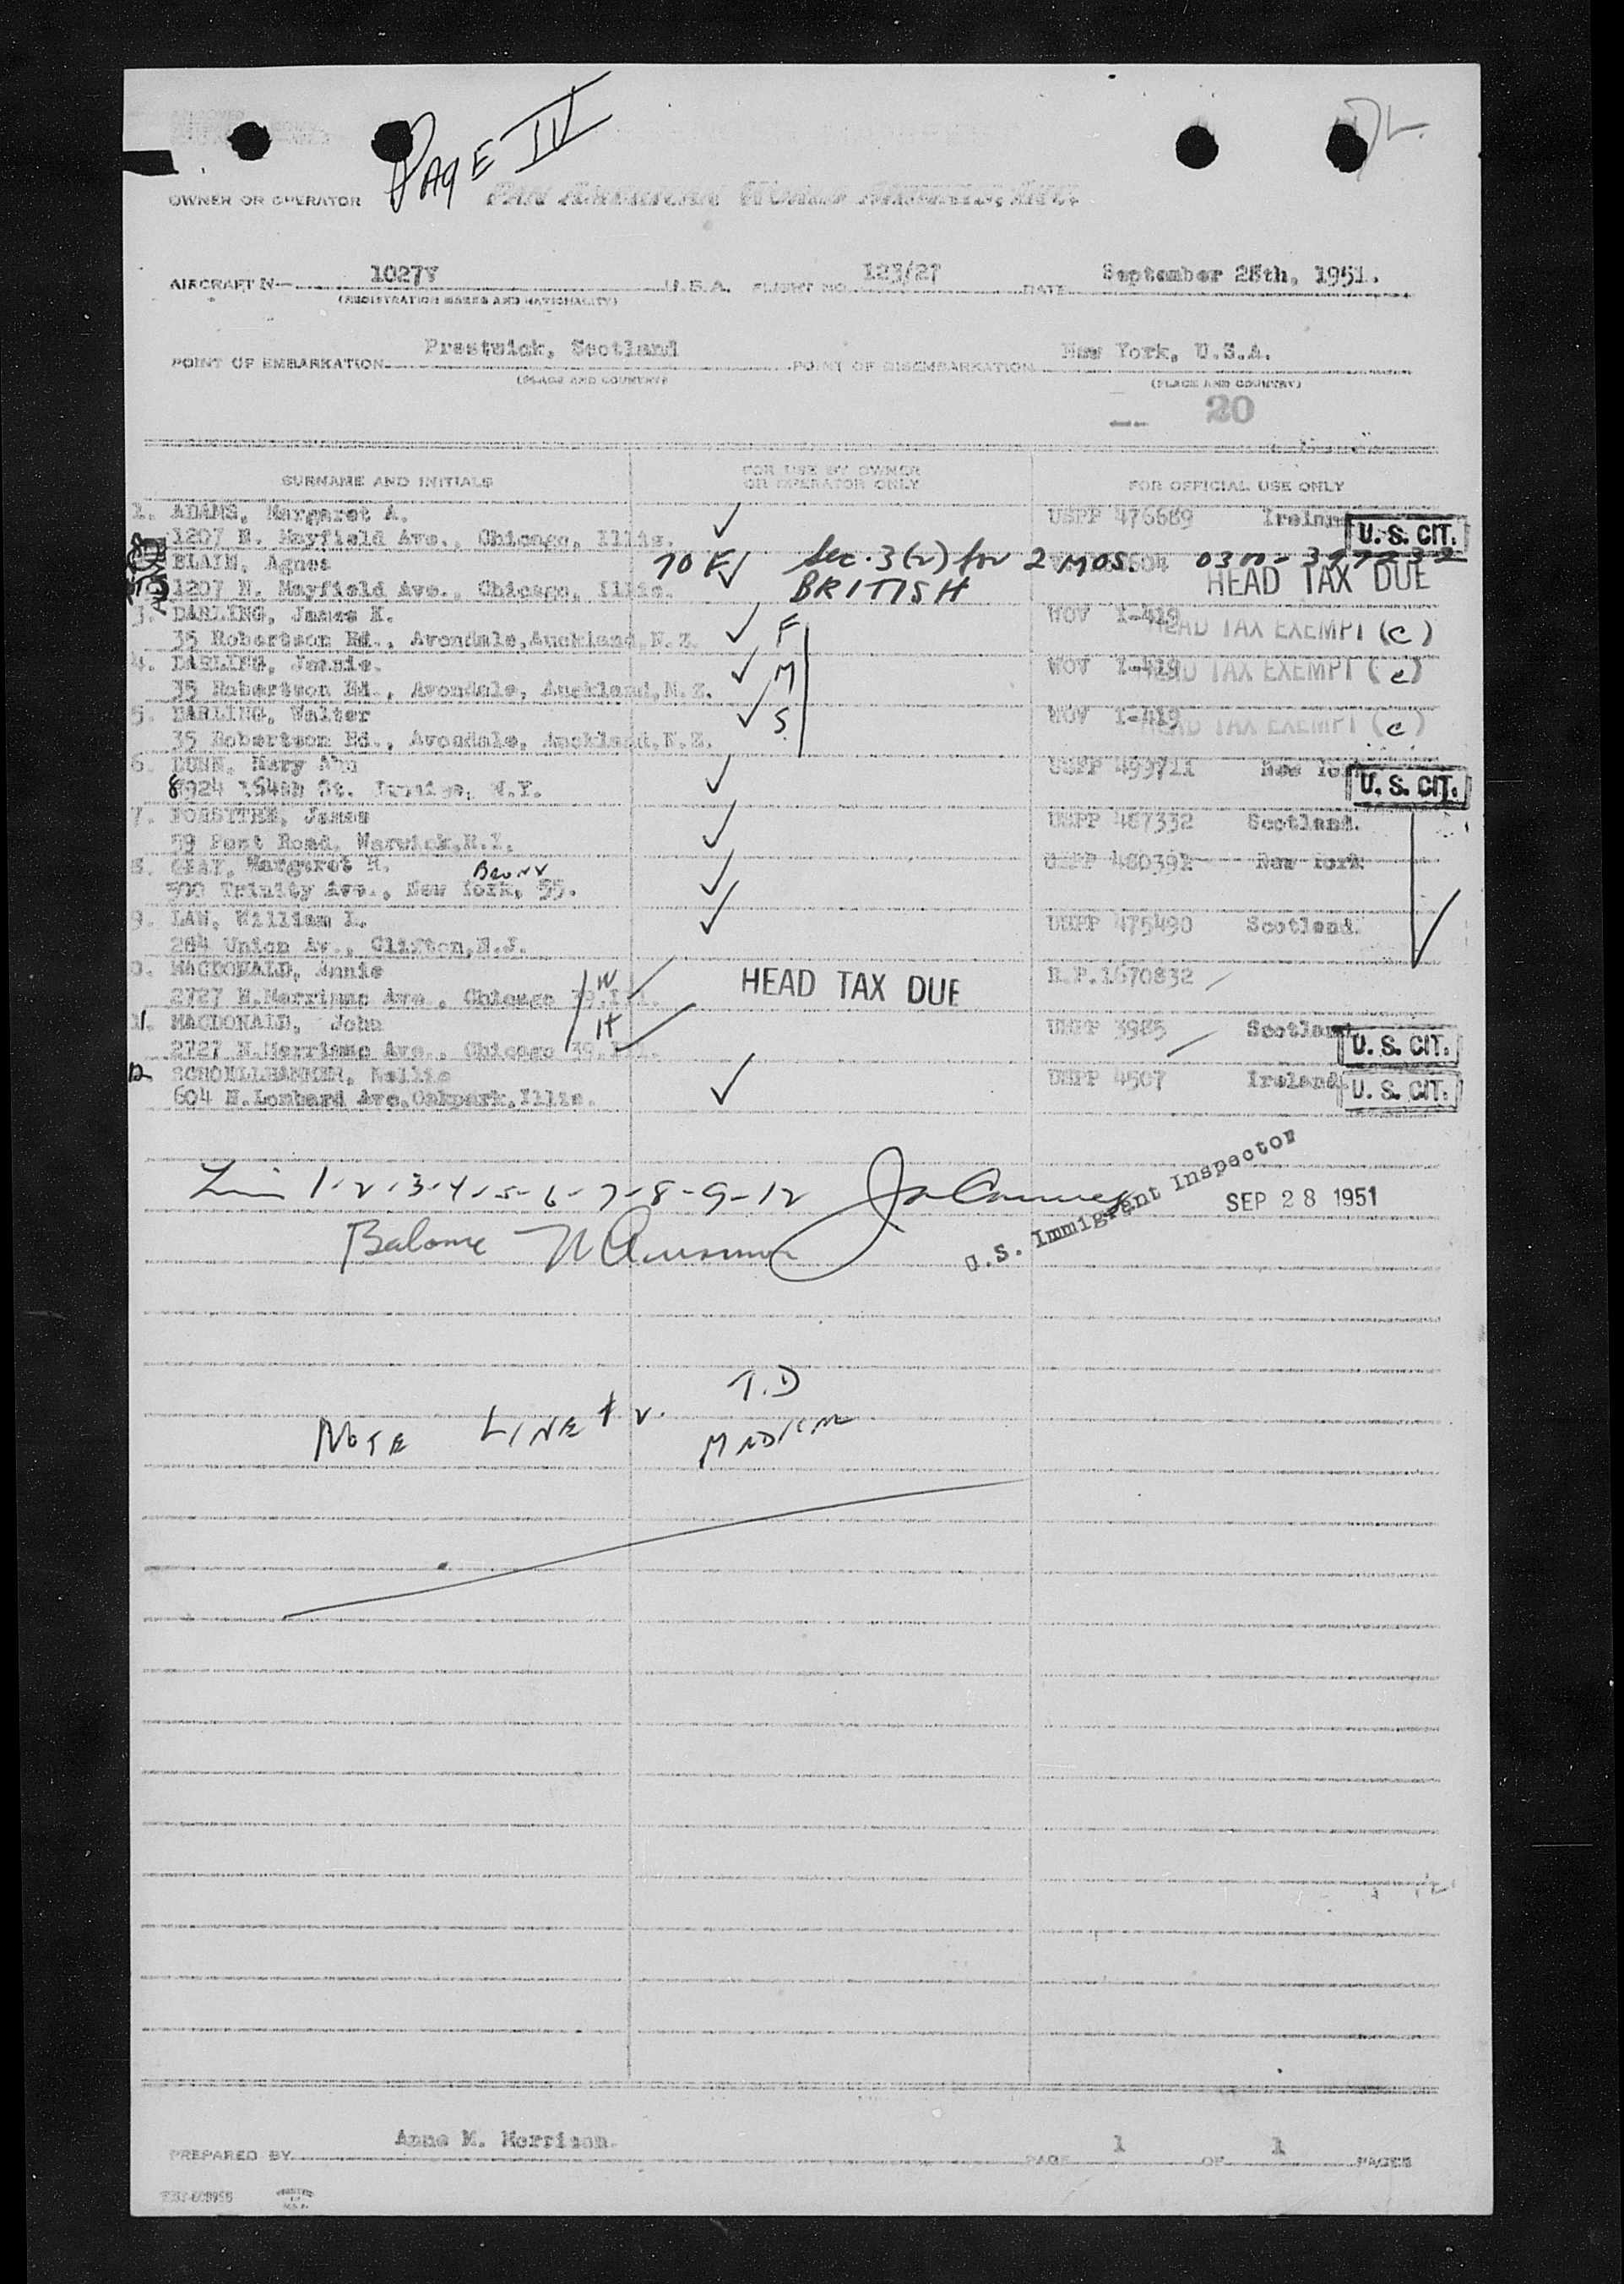 PAGE IV
OWNER OR OPERATOR PAN AMERICAN WORLD AIRWAYS, INC.
AIRCRAFT N— 1027V U.S.A. FLIGHT NO. 123/27 DATE September 28th, 1951.
(REGISTRATION MARKS AND NATIONALITY)
POINT OF EMBARKATION Prestwick, Scotland POINT OF DISEMBARKATION New York, U.S.A.
(PLACE AND COUNTRY) (PLACE AND COUNTRY)
20
SURNAME AND INITIALS FOR USE BY OWNER OR OPERATOR ONLY FOR OFFICIAL USE ONLY
1. ADAMS, Margaret A. USPP 476689 Ireland
1207 N. Mayfield Ave., Chicago, Illis. U. S. CIT.
BLAIN, Agnes 70 F Sec. 3(2) for 2 MOS.
1207 N. Mayfield Ave., Chicago, Illis. BRITISH HEAD TAX DUE
3. DARLING, James K. F WOV I-419
35 Robertson Rd., Avondale, Auckland, N.Z. HEAD TAX EXEMPT (c)
4. DARLING, Jessie. M WOV I-419
35 Robertson Rd., Avondale, Auckland, N.Z. HEAD TAX EXEMPT (c)
5. DARLING, Walter S. WOV I-419
35 Robertson Rd., Avondale, Auckland, N.Z. HEAD TAX EXEMPT (c)
6. DUNN, Mary Ann USPP New York
8924 164th St. Jamaica, N.Y. U. S. CIT.
7. FORSYTHE, James USPP 487332 Scotland.
59 Post Road. Warwick, R.I.
8. GRAY, Margaret H. USPP New York
Bronx
590 Trinity Ave., New York, 55.
9. LAW, William L. USPP 475490 Scotland.
284 Union Av., Clifton, N.J.
0. MACDONALD, Annie W HEAD TAX DUE R.P. 1670832
2727 N. Merrimac Ave., Chicago 39. Ill.
11. MACDONALD, John H USPP 3985 Scotland
2727 N. Merrimac Ave., Chicago 39. Ill. U. S. CIT.
12 SCHOELLHAMMER, Nellie USPP 4507 Ireland
604 N. Lombard Ave. Oakpark, Illis. U. S. CIT.
1-2-3-4-5-6-7-8-9-12
U.S. Immigrant Inspector SEP 28 1951
Balance
T.D
NOTE LINE # 2.
PREPARED BY Anne M. Morrison. PAGE 1 OF 1 PAGES
PRINTED IN U.S.A.